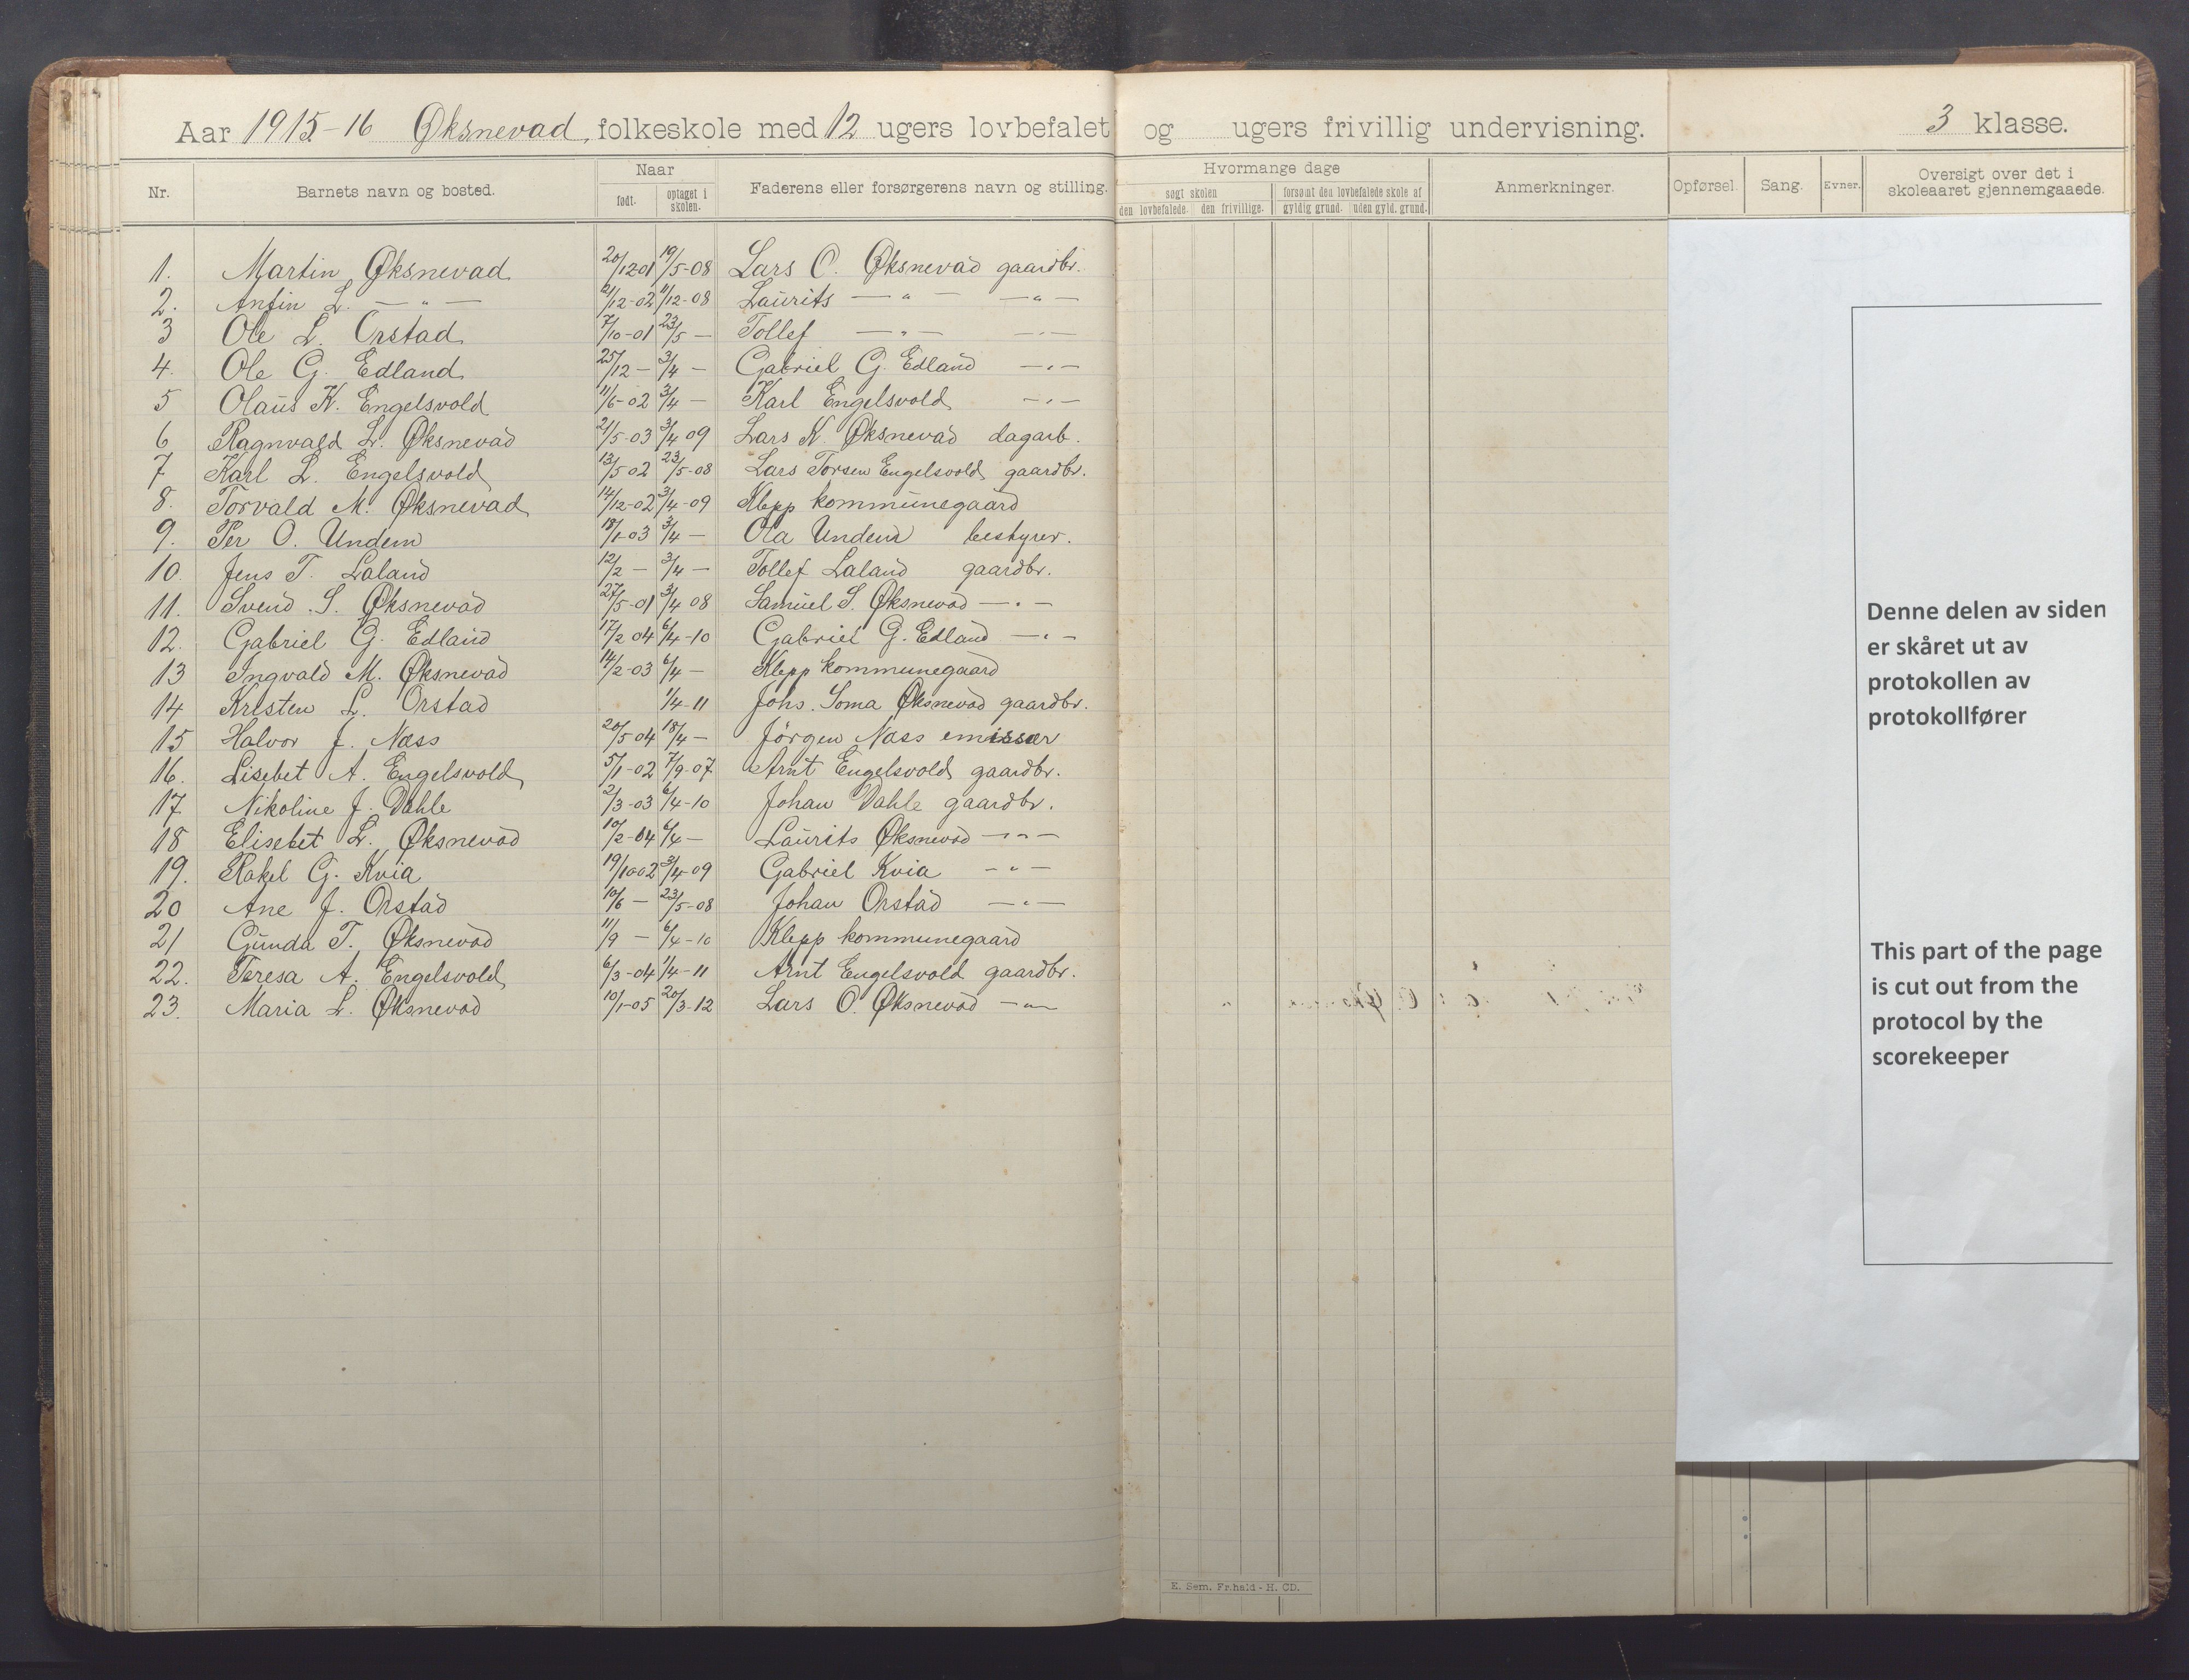 Aar 1915-16 Øksnevad, folkeskole med 12 ugers lovbefalet og ugers frivillig undervisning. 3 klasse.
Nr. Barnets navn og bosted. Naar født. optaget i skolen. Faderens eller forsørgerens navn og stilling. Hvormange dage søgt skolen den lovbefalede. den frivillige. forsømt den lovbefalede skole af gyldig grund. uden gyld. grund. Anmerkninger. Opførsel. Sang. Evner. Oversigt over det i skoleaaret gjennemgaaede.
1. Martin Øksnevad 20/12-01 19/5-08 Lars O. Øksnevad gaardbr.
2. Anfin L. — " — 21/12-02 11/12-08 Laurits — " — — " —
3 Ole L. Orstad 7/10-01 23/5 — Tollef — " — — " —
4. Ole G. Edland 25/12 — 3/4 — Gabriel G. Edland — " —
5 Olaus K. Engelsvold 11/6-02 3/4 — Karl Engelsvold — " —
6 Ragnvald L. Øksnevad 21/5-03 3/4 09 Lars N. Øksnevad dagarb.
7 Karl L. Engelsvold 13/5 02 23/5-08 Lars Torsen Engelsvold gaardbr.
8. Torvald M. Øksnevad 14/12-02 3/4-09 Klepp kommunegaard
9. Per O. Undem 18/1-03 3/4 — Ola Undem bestyrer.
10. Jens T. Laland 12/2 — 3/4 — Tollef Laland gaardbr.
11. Svend S. Øksnevad 27/5-01 3/4 08 Samuel S. Øksnevad — " —
12. Gabriel G. Edland 17/2 04 6/4-10 Gabriel G. Edland — " —
13 Ingvald M. Øksnevad 14/2-03 6/4 — Klepp kommunegaard
14 Kristen L. Orstad 1/4-11 Johs. Soma Øksnevad gaardbr.
15 Halvor J. Næss 20/5 04 18/4 — Jörgen Næss emissær
16. Lisebet A. Engelsvold 5/1-02 7/9-07 Arnt Engelsvold gaardbr.
17. Nikoline J. Dahle 2/3-03 6/4-10 Johan Dahle gaardbr.
18 Elisebet L. Øksnevad 10/2-04 6/4 — Laurits Øksnevad — " —
19. Rakel G. Kvia 19/10-02 3/4-09 Gabriel Kvia — " —
20 Ane J. Orstad 10/6 — 23/5-08 Johan Orstad — " —
21 Gunda T. Øksnevad 11/9 — 6/4-10 Klepp kommunegaard
22. Teresa A. Engelsvold 6/3-04 1/4-11 Arnt Engelsvold gaardbr.
23. Maria L. Øksnevad 10/1-05 20/3-12 Lars O. Øksnevad — " —
E. Sem. Fr.hald - H. CD.
Denne delen av siden
er skåret ut av
protokollen av
protokollfører
This part of the page
is cut out from the
protocol by the
scorekeeper